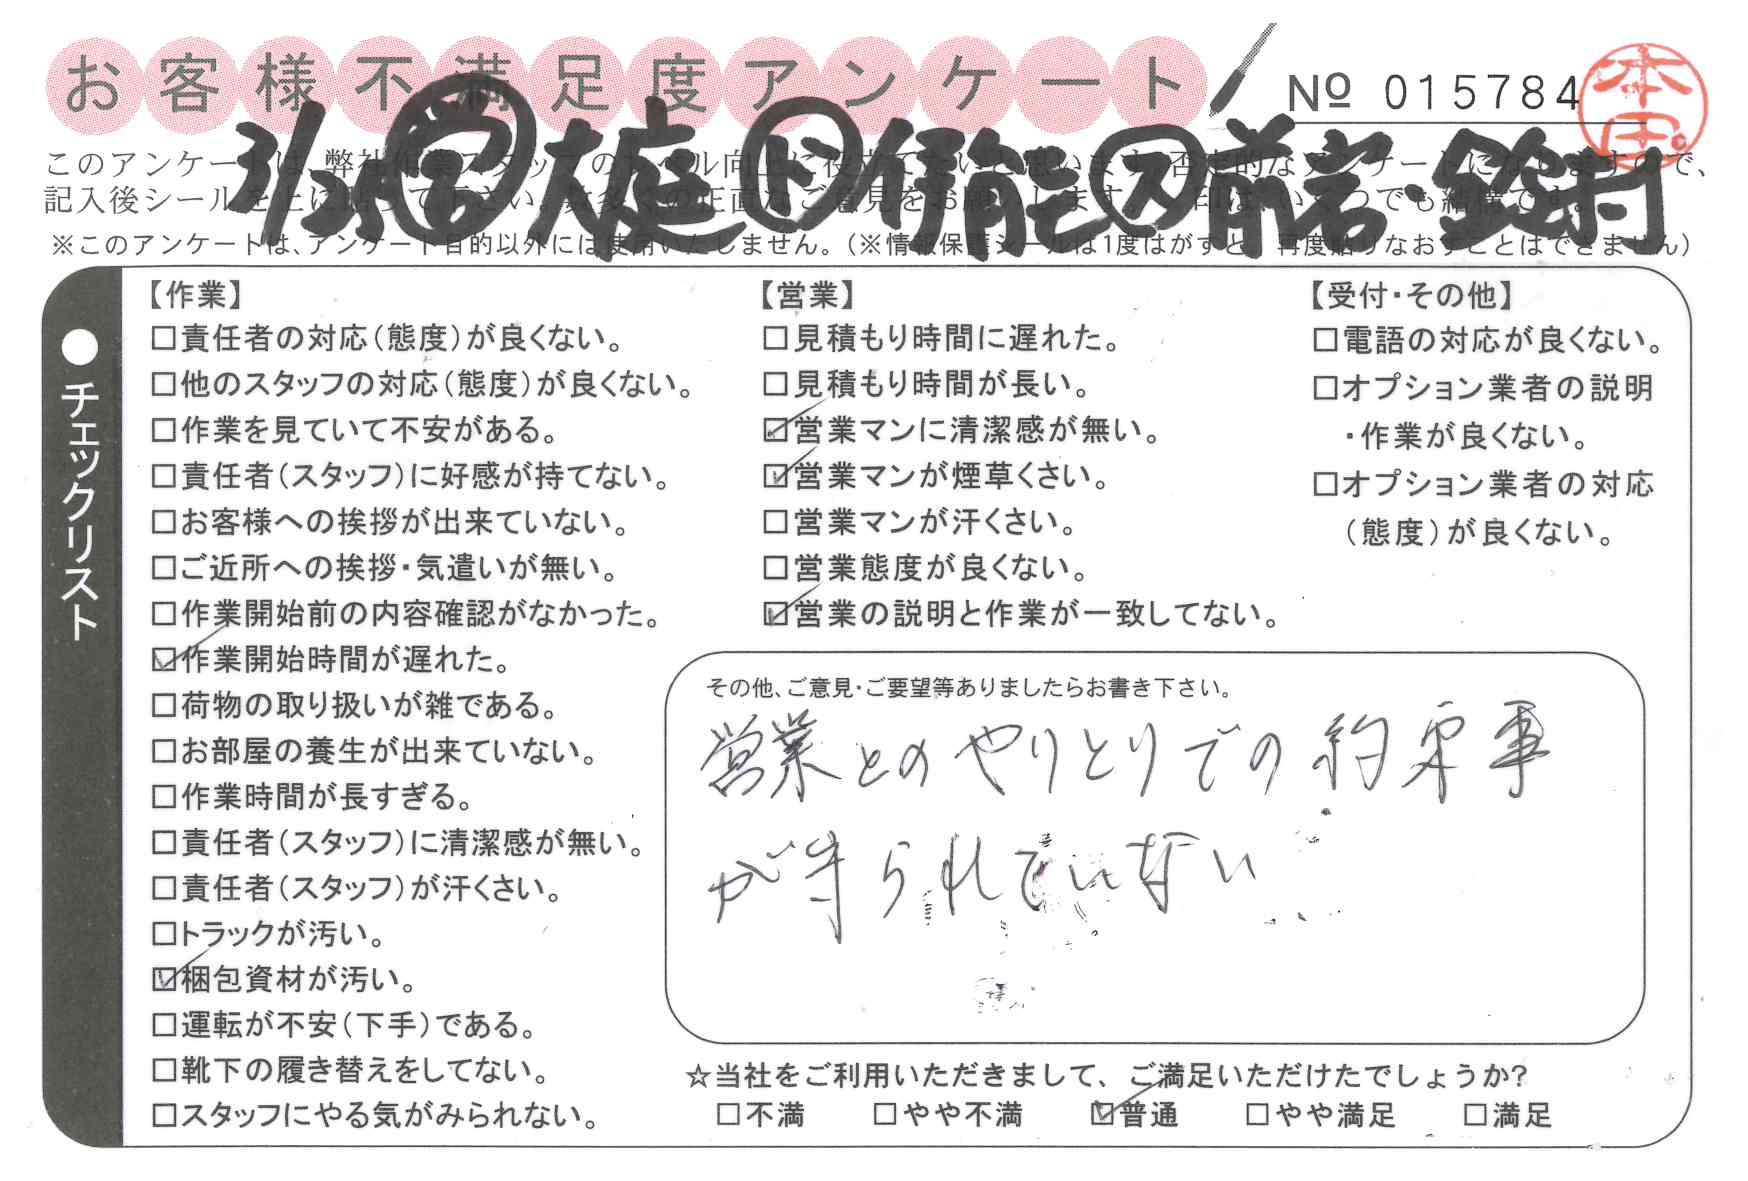 お客様不満足度アンケート
№ 015784
本田
3/29 営 大庭 ド 伊能 ス 前岩・鈴村
このアンケートは、弊社作業スタッフのレベル向上に役立てたいと思います。否定的なアンケートになりますので、
記入後シールを上に貼って下さい。数多くの正直なご意見をお願いします。 印は、いくつでも結構です。
※このアンケートは、アンケート目的以外には使用いたしません。(※情報保護シールは1度はがすと、再度貼りなおすことはできません)
●チェックリスト
【作業】
□責任者の対応(態度)が良くない。
□他のスタッフの対応(態度)が良くない。
□作業を見ていて不安がある。
□責任者(スタッフ)に好感が持てない。
□お客様への挨拶が出来ていない。
□ご近所への挨拶・気遣いが無い。
□作業開始前の内容確認がなかった。
☑作業開始時間が遅れた。
□荷物の取り扱いが雑である。
□お部屋の養生が出来ていない。
□作業時間が長すぎる。
□責任者(スタッフ)に清潔感が無い。
□責任者(スタッフ)が汗くさい。
□トラックが汚い。
☑梱包資材が汚い。
□運転が不安(下手)である。
□靴下の履き替えをしてない。
□スタッフにやる気がみられない。
【営業】
□見積もり時間に遅れた。
□見積もり時間が長い。
☑営業マンに清潔感が無い。
☑営業マンが煙草くさい。
□営業マンが汗くさい。
□営業態度が良くない。
☑営業の説明と作業が一致してない。
【受付・その他】
□電語の対応が良くない。
□オプション業者の説明
・作業が良くない。
□オプション業者の対応
(態度)が良くない。
その他、ご意見・ご要望等ありましたらお書き下さい。
営業とのやりとりでの約束事
が守られていない
☆当社をご利用いただきまして、ご満足いただけたでしょうか?
□不満 □やや不満 ☑普通 □やや満足 □満足